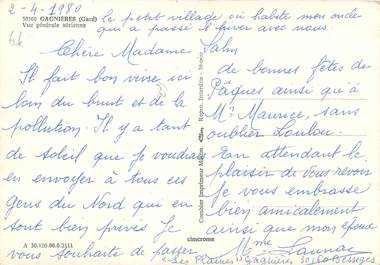 2-4-1980
30160 GAGNIÈRES (Gard)
Vue générale aérienne
Le petit village où habite mon oncle
qui a passé l'hiver avec nous.
Chère Madame Jahn
Il fait bon vivre ici
loin du bruit et de la
pollution. Il y a tant
de soleil que je voudrais
en envoyer à tous ces
gens du Nord qui en
sont bien privés. Je
vous souhaite de passer
de bonnes fêtes de
Pâques ainsi qu'à
Mr Maurice, sans
oublier Loulou.
En attendant le
plaisir de vous revoir
je vous embrasse
bien amicalement
ainsi que mon époux
Mme Launac
"Les Plaines" Gagnières 30160 Bessèges
Combier Imprimeur Mâcon
Repro. Interdite
cimcrome
A 30.120.00.0.2111